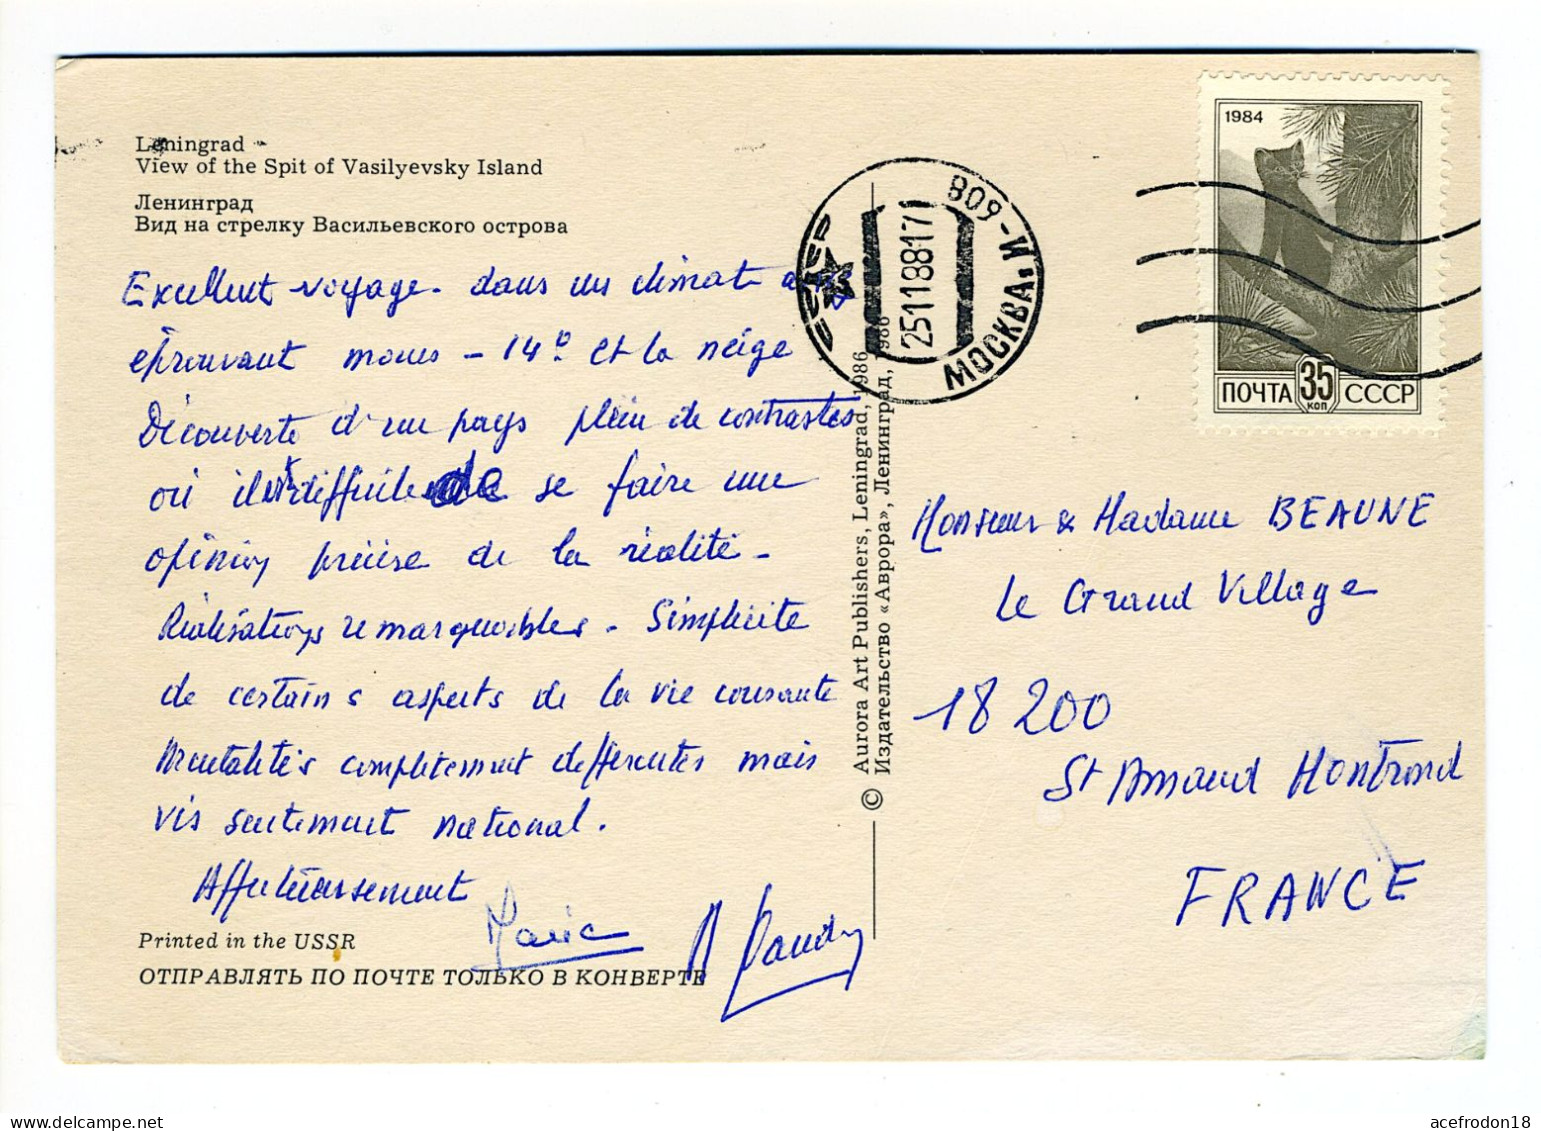 Leningrad
View of the Spit of Vasilyevsky Island
Ленинград
Вид на стрелку Васильевского острова
Excellent voyage. dans un climat
éprouvant moins - 14° et la neige
Découverte d'un pays plein de contrastes
où il est difficile de se faire une
opinion précise de la réalité -
Réalisations remarquables. Simplicité
de certains aspects de la vie courante
Mentalités complètement differentes mais
vis sentiment national.
Affectueusement
Marie
Printed in the USSR
ОТПРАВЛЯТЬ ПО ПОЧТЕ ТОЛЬКО В КОНВЕРТЕ
© Aurora Art Publishers, Leningrad, 1986
Издательство «Аврора», Ленинград, 1986
СССР
МОСКВА. И-809
25111988171
1984
ПОЧТА 35 КОП СССР
Monsieur & Madame BEAUNE
Le Grand Village
18 200
St Amand Montrond
FRANCE
acefrodon18